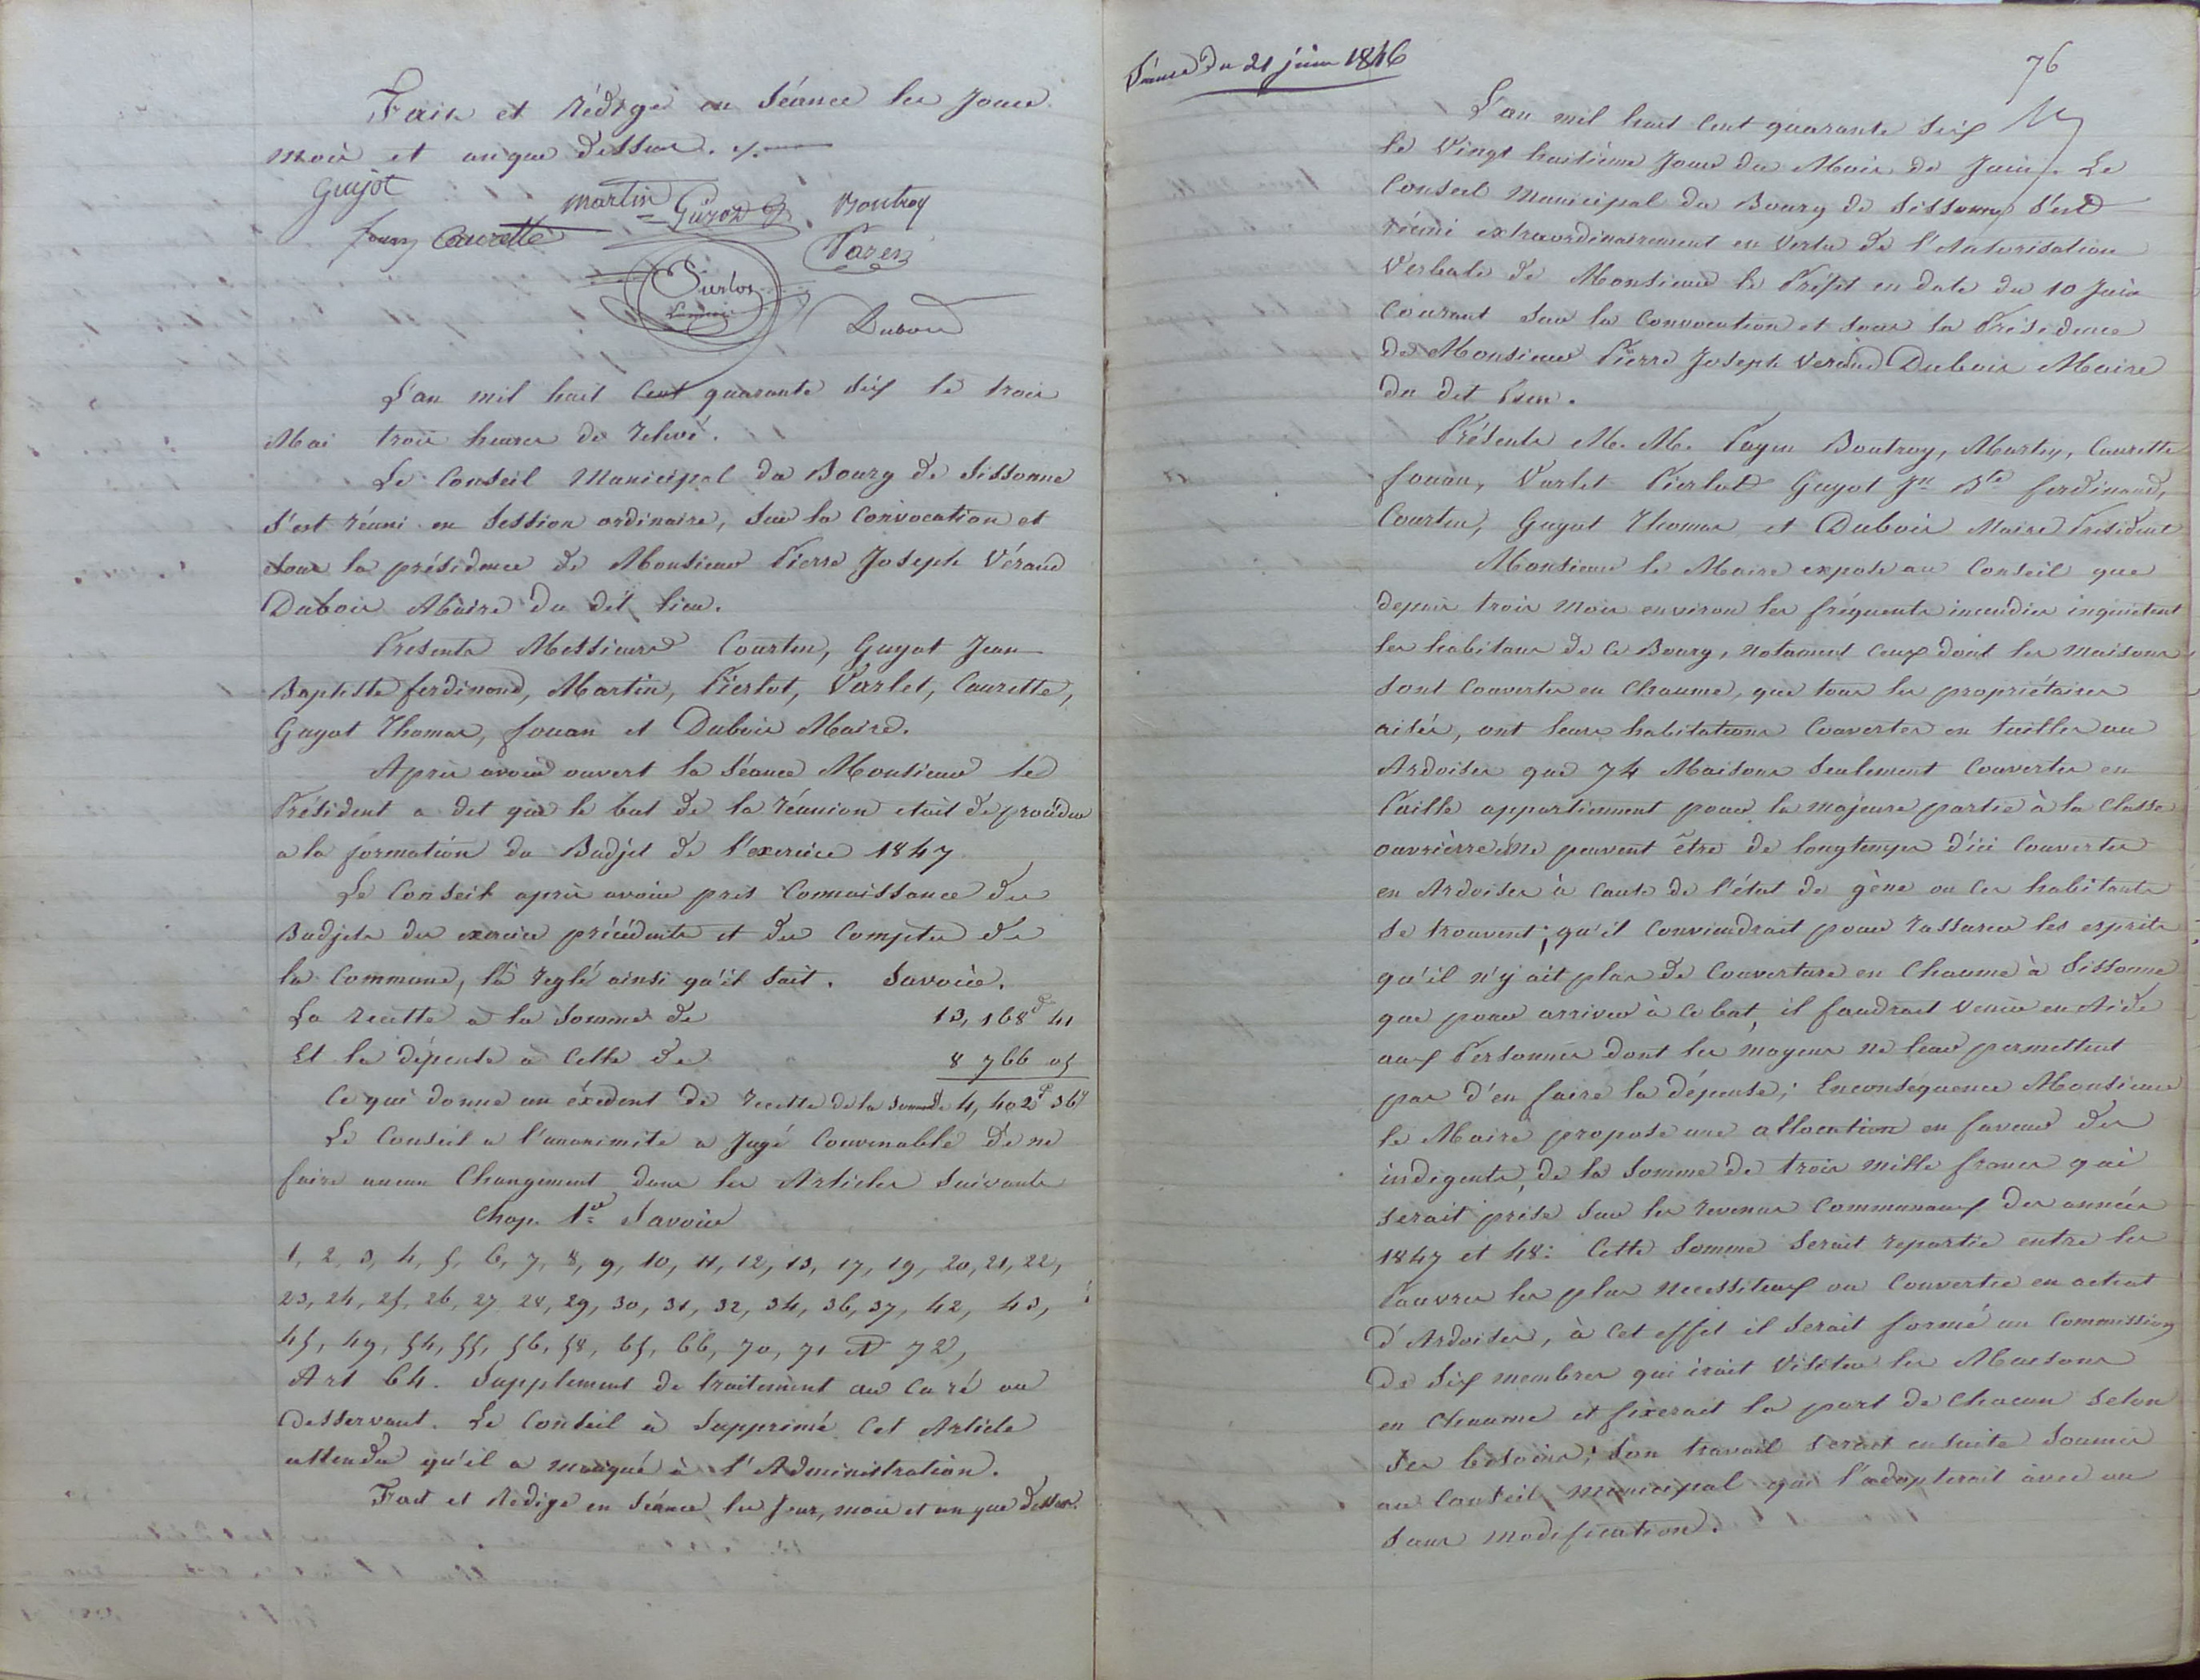 Fait et rédigé en Séance les Jour
mois et an que dessus. ./.
Guyot
martin
Boutroy
fouan Caurette
Payen
Pierlot
Dubois
L'an mil huit Cent quarante Six le trois
Mai trois heures de relevé.
Le Conseil Municipal du Bourg de Sissonne
s'est réuni en Session ordinaire, sur la Convocation et
sous la présidence de Monsieur Pierre Joseph Vérand
Dubois Maire du dit lieu.
Présents Messieurs Courtin, Guyot Jean
Baptiste ferdinand, Martin, Pierlot, Varlet, Caurette,
Guyot Thomas, fouan et Dubois Maire.
Après avoir ouvert la Séance Monsieur le
Président a dit que le but de la réunion était de procéder
a la formation du Budjet de l'exercice 1847
Le Conseil après avoir pris Connaissance des
Budjets des exercice précédents et des Comptes de
la Commune, l'a reglé ainsi qu'il Suit. Savoir.
La recette a la Somme de 13,168f 41
Et la dépense à Celle de 8 766 05
Ce qui donne un éxedent de recette de la Somme de 4,402f 36c
Le Conseil a l'unanimité a Jugé Convenable de ne
faire aucun Changement dans les Articles Suivants
Chap. 1er Savoir
1, 2, 3, 4, 5, 6, 7, 8, 9, 10, 11, 12, 13, 17, 19, 20, 21, 22,
23, 24, 25, 26, 27 28, 29, 30, 31, 32, 34, 36, 37, 42, 43,
45, 49, 54, 55, 56, 58, 65, 66, 70, 71 et 72,
Art 64. Supplement de traitement au Curé ou
desservant. Le Conseil à Supprimé Cet Article
attendu qu'il a manqué à l'Administration.
Fait et Redigé en Séance les Jour, mois et an que dessus.
Séance du 21 juin 1846
76
L'an mil huit Cent quarante Six
le Vingt huitième Jour du Mois de Juin. Le
Conseil Municipal du Bourg de Sissonne s'est
réuni extraordinairement en Vertu de l'Autorisation
Verbale de Monsieur le Préfet en date du 10 Juin
Courant Sur la Convocation et Sous la Présidence
de Monsieur Pierre Joseph Verand Dubois Maire
du dit lieu.
Présents M. M. Payen Boutroy, Martin, Caurette
fouan, Varlet Pierlot Guyot Jn Bte ferdinand,
Courtin, Guyot Thomas et Dubois Maire Président
Monsieur le Maire expose au Conseil que
depuis trois Mois environ les fréquents incendies inquietent
les habitans de Ce Bourg, notament Ceux dont les Maisons
Sont Couvertes en Chaume, que tous les propriétaires
aisés, ont leurs habitations Couvertes en tuilles ou
Ardoises que 74 Maisons Seulement Couvertes en
Paille appartiennent pour la majeure partie à la Classe
ouvrièrre & ne peuvent être de longtemps d'ici Couvertes
en Ardoises à Cause de l'état de gène ou Ces habitants
Se trouvent; qu'il Conviendrait pour rassurer les esprits
qu'il n'y ait plus de Couverture en Chaume à Sissonne
que pour arriver à Ce but, il faudrait Venir en Aide
aux Personnes dont les moyens ne leur permettent
pas d'en faire la dépense; Enconséquence Monsieur
le Maire propose une allocation en faveur des
indigents, de la Somme de trois mille francs qui
Serait prise Sur les revenus Communaux des années
1847 et 48: Cette Somme Serait repartie entre les
Pauvres les plus necessiteux ou Convertie en achat
d'Ardoises, à Cet effet il Serait formé un Commission
de Six membres qui irait Visiter les Maisons
en Chaume et fixerait la part de Chacun Selon
Ses besoins; Son travail Serait ensuite Soumis
au Conseil Municipal qui l'adopterait avec ou
Sans modification.